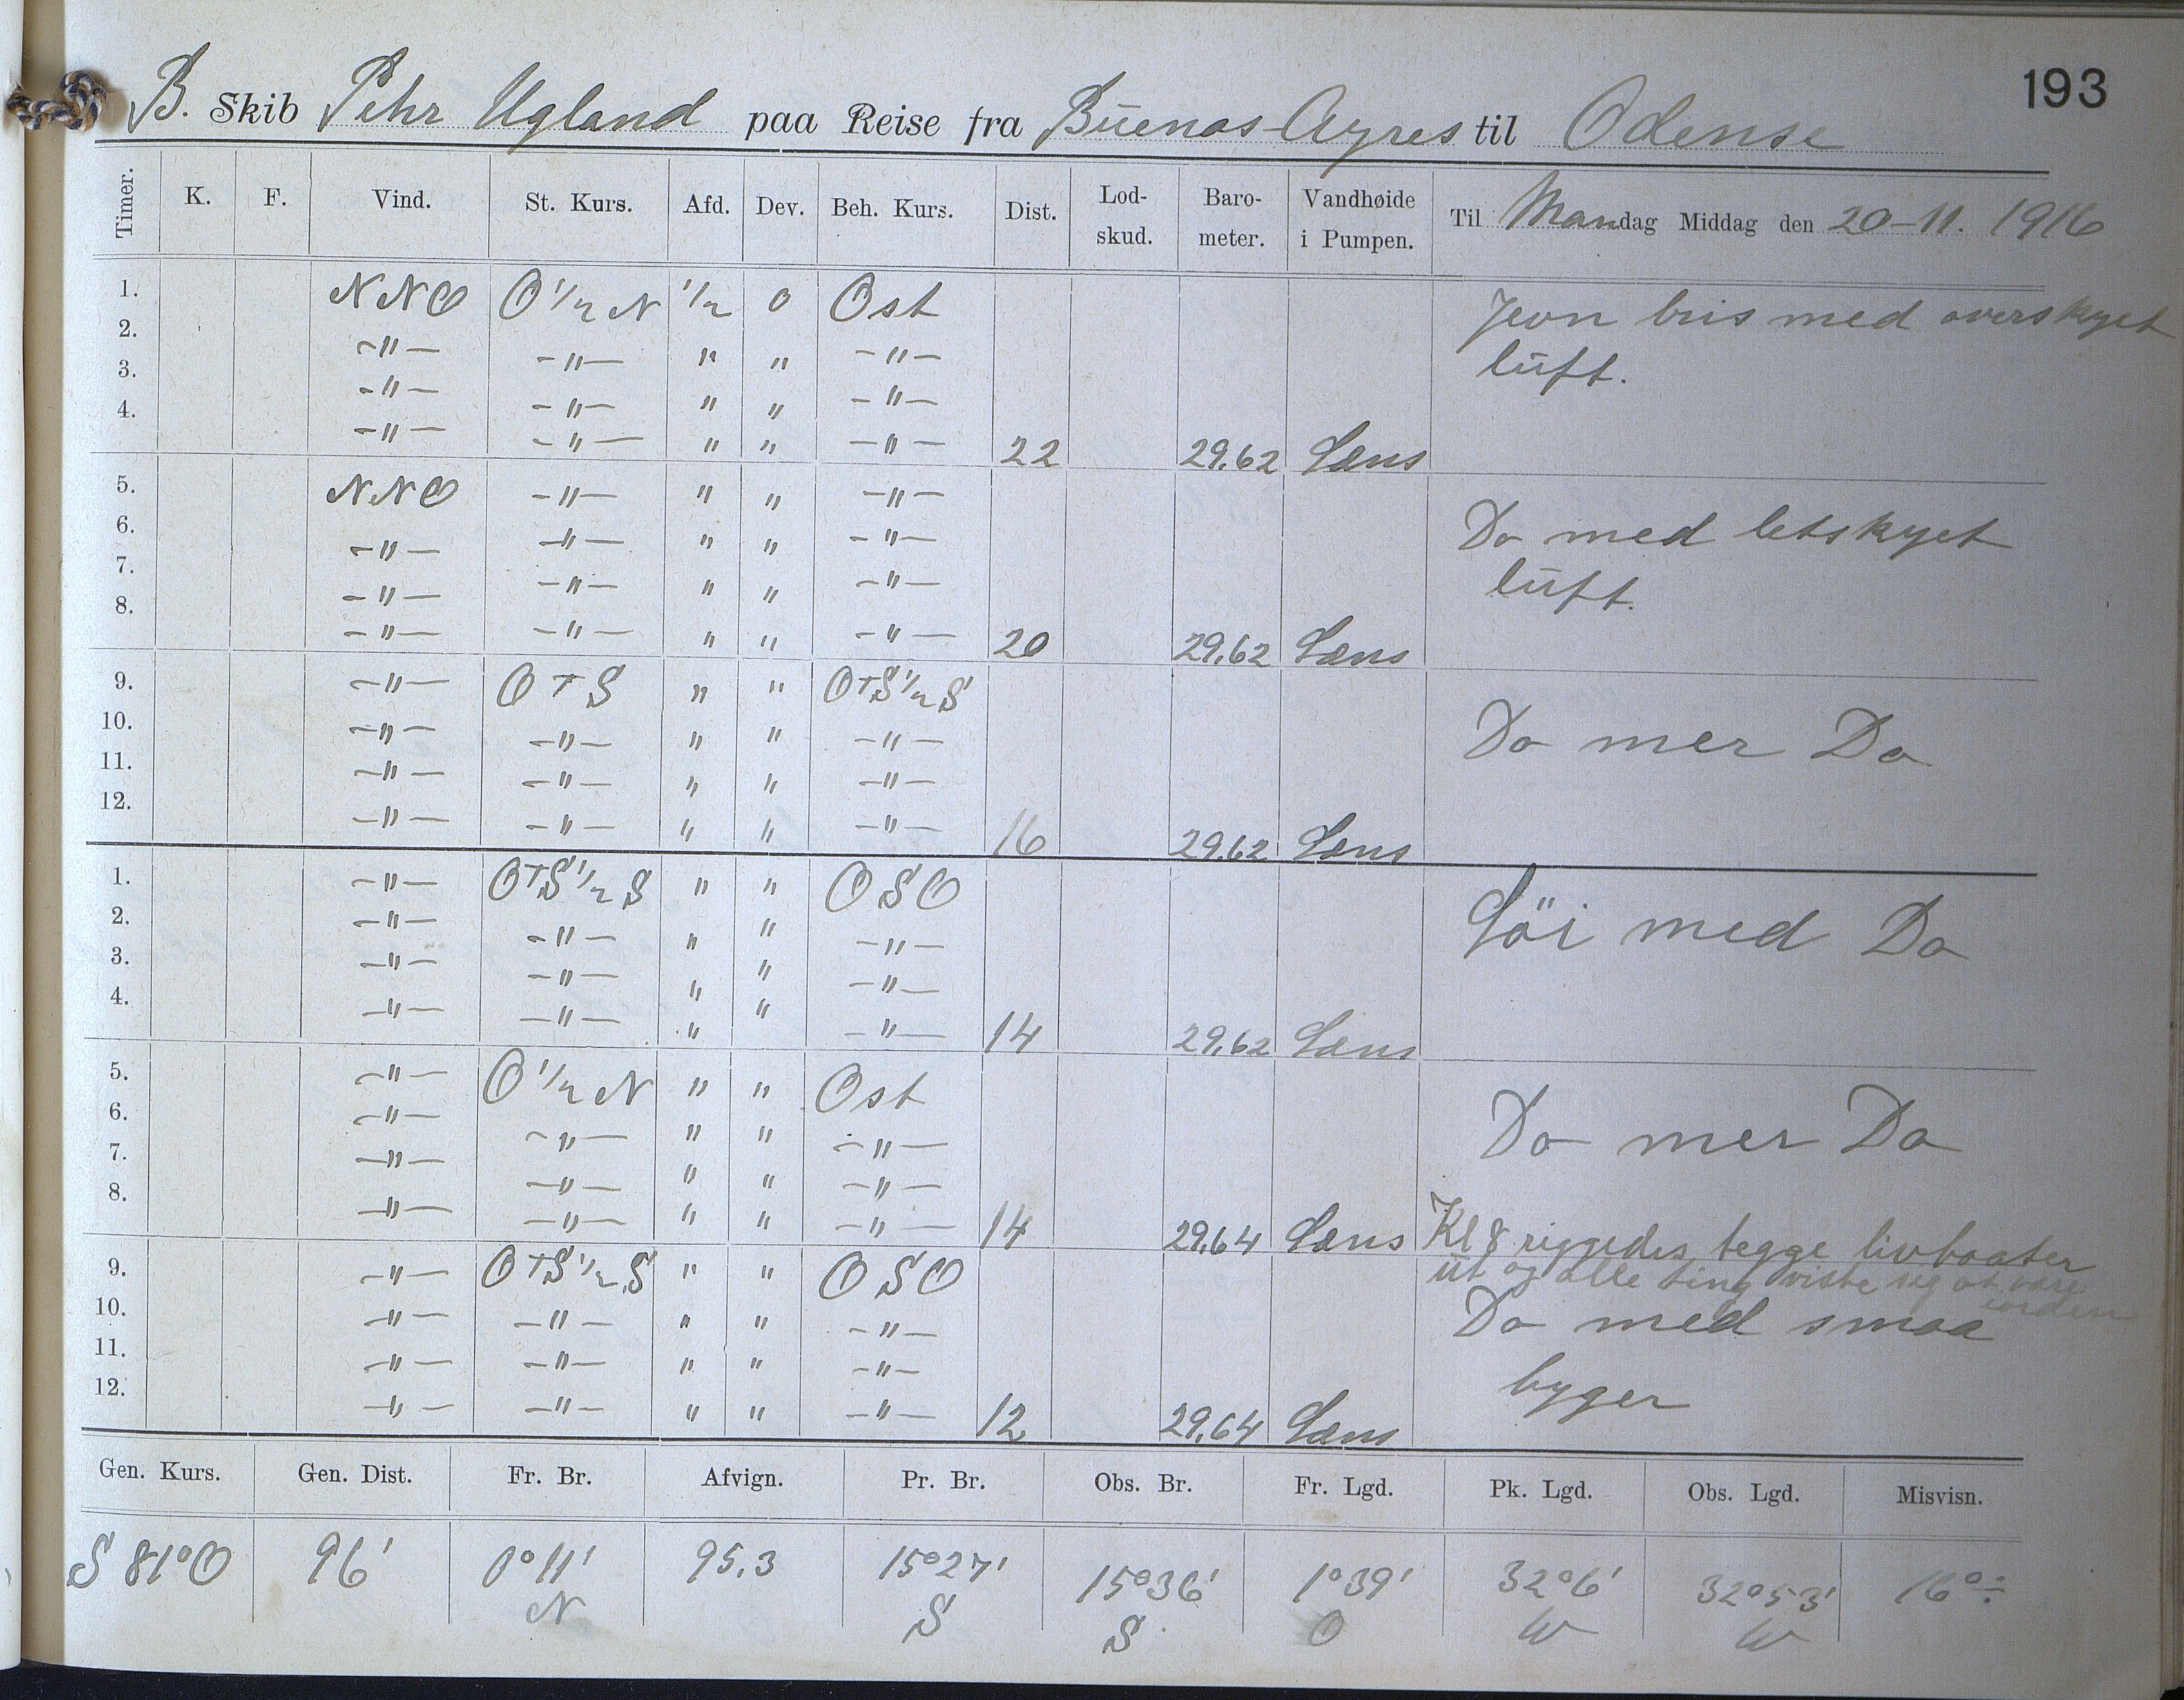 193
B. Skib Pehr Ugland paa Reise fra Buenos-Ayres til Odense
Timer. K. F. Vind. St. Kurs. Afd. Dev. Beh. Kurs. Dist. Lod-skud. Baro-meter. Vandhøide i Pumpen. Til Mandag Middag den 20-11. 1916
1. NNO O 1/2 N 1/2 0 Ost Jevn bris med overskyet
2. -"- -"- " " -"- luft.
3. -"- -"- " " -"-
4. -"- -"- " " -"- 22 29.62 Læns
5. NNO -"- " " -"- Do med letskyet
6. -"- -"- " " -"- luft.
7. -"- -"- " " -"-
8. -"- -"- " " -"- 20 29.62 Læns
9. -"- OTS " " OTS 1/2 S
10. -"- -"- " " -"- Do mer Do
11. -"- -"- " " -"-
12. -"- -"- " " -"- 16 29.62 Læns
1. -"- OTS 1/2 S " " OSO
2. -"- -"- " " -"- Löi med Do
3. -"- -"- " " -"-
4. -"- -"- " " -"- 14 29.62 Læns
5. -"- O 1/2 N " " Ost
6. -"- -"- " " -"- Do mer Do
7. -"- -"- " " -"-
8. -"- -"- " " -"- 14 29.64 Læns Kl 8 riggedes begge livbaater
ut og alle ting viste sig at være
iorden
9. -"- OTS 1/2 S " " OSO
10. -"- -"- " " -"- Do med smaa
11. -"- -"- " " -"- byger
12. -"- -"- " " -"- 12 29.64 Læns
Gen. Kurs. Gen. Dist. Fr. Br. Afvign. Pr. Br. Obs. Br. Fr. Lgd. Pk. Lgd. Obs. Lgd. Misvisn.
S 81° O 96' 0° 11' 95.3 15° 27' 15° 36' 1° 39' 32° 6' 32° 53' 16° ÷
N S S O W W